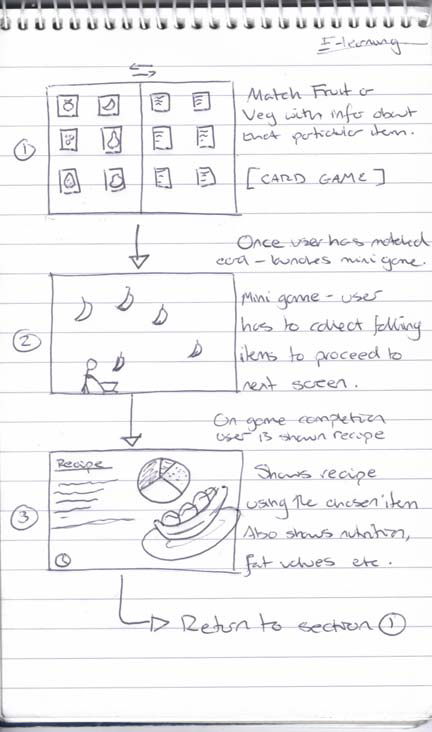 E-learning
①
Match Fruit or
Veg with info about
that particular item.
[CARD GAME]
Once user has matched
card – launches minigame.
②
Mini game – user
has to collect falling
items to proceed to
next screen.
On game completion
user is shown recipe
③
Recipe
Shows recipe
using the chosen item
Also shows nutrition,
fat values etc.
Return to section ①